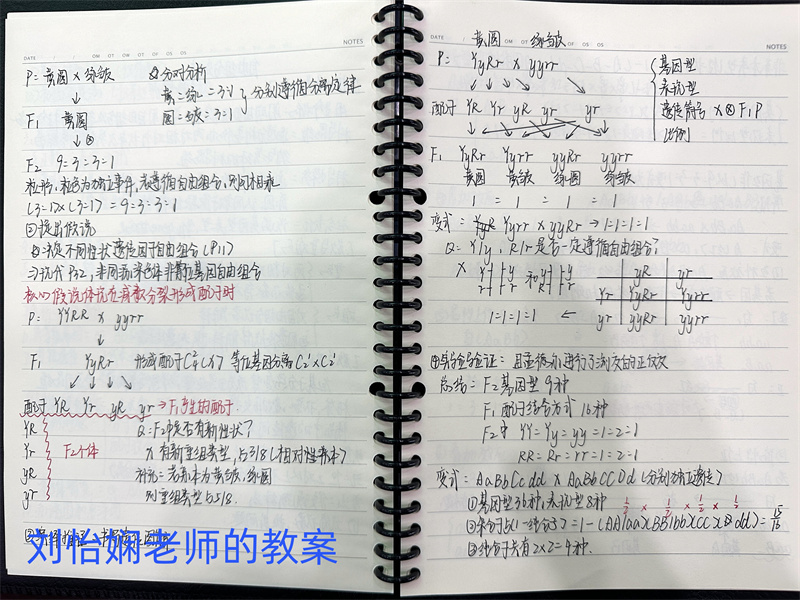 DATE
NOTES
P: 黄圆 × 绿皱 ①分对分析
↓ 黄:绿 = 3:1 } 分别遵循分离定律
F₁ 黄圆 圆:皱 = 3:1
↓⊗
F₂ 9:3:3:1
粒形、粒色为独立事件,若遵循自由组合,则可相乘
(3:1)×(3:1) = 9:3:3:1
②提出假说
决定不同性状遗传因子自由组合 (P11)
现代 P32, 非同源染色体非等位基因自由组合
核心假说体现在减数分裂形成配子时
P: YYRR × yyrr
↓
F₁ YyRr 形成配子 等位基因分离 C₂¹×C₂¹
配子 YR Yr yR yr → F₁产生的配子.
YR Q: F2中是否有新性状?
Yr F2个体 × 有新重组类型, 占3/8 (相对性亲本)
yR 补充: 若亲本为黄皱、绿圆
yr 则重组类型占5/8.
刘怡娴老师的教案
DATE
NOTES
黄圆 绿皱
P: YyRr × yyrr
配子 YR Yr yR yr yr
{ 基因型
表现型
遗传符号 × ⊗ F₁ P
比例
F₁ YyRr Yyrr yyRr yyrr
黄圆 黄皱 绿圆 绿皱
1 : 1 : 1 : 1
变式: Yyrr × yyRr → 1:1:1:1
Q: Y/y, R/r 是否一定遵循自由组合?
× 和
yR yr
Yr YyRr Yyrr
1:1:1:1 ← yr yyRr yyrr
④实验验证: 且孟德尔进行了测交的正反交
总结: F2基因型 9种
F₁配子结合方式 16种
F2中 YY:Yy:yy = 1:2:1
RR:Rr:rr = 1:2:1
变式: AaBbCcdd × AaBbCCDd (分别独立遗传)
①基因型36种, 表现型8种
1/2 × 1/2 × 1/2 × 1/2
= 1-(AA/aa)(BB/bb)(CC)(dd) = 15/16
③纯合子共有 2×2 = 4种.